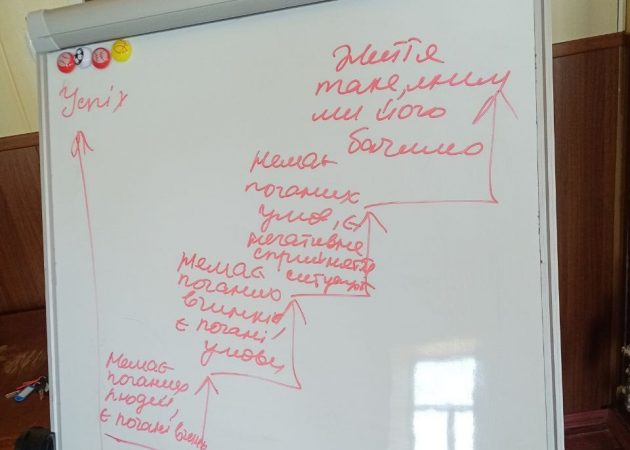 Успіх
Життя
таке, яким
ми його
бачимо
немає
поганих
умов, є
негативне
сприйняття
ситуації
немає
поганих
вчинків
є погані
умови
немає
поганих
людей,
є погані вчинки